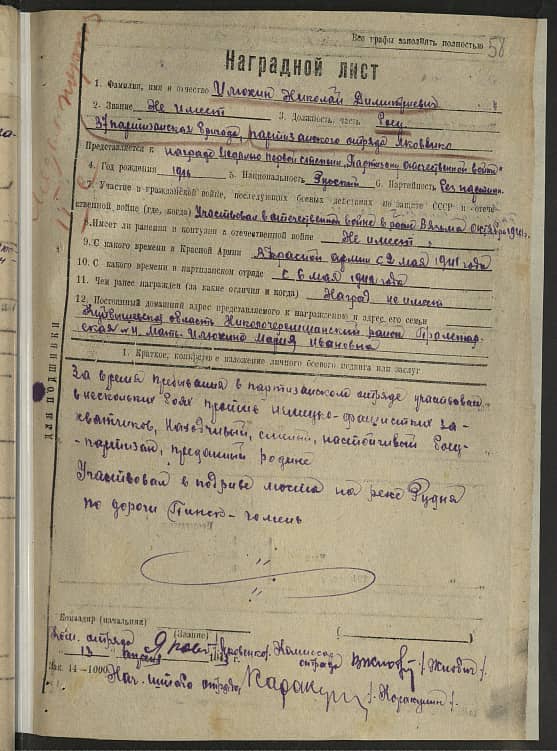 Все графы заполнять полностью 58
Наградной лист
1. Фамилия, имя и отчество Илюхин Николай Димитриевич
2. Звание Не имеет 3. Должность, часть Боец
37 партизанская бригада, партизанского отряда Яковенко
Представляется к награде Медалью первой степени „Партизану отечественной войны"
4. Год рождения 1916 5. Национальность Русский 6. Партийность Беспартийн.
7. Участие в гражданской войне, последующих боевых действиях по защите СССР и отечественной
войне (где, когда) Участвовал в отечественной войне в Вязьма октябрь 1941 г.
8. Имеет ли ранения и контузии в отечественной войне Не имеет
9. С какого времени в Красной Армии В красной армии с 2 мая 1941 года
10. С какого времени в партизанском отряде с 6 мая 1942 года
11. Чем ранее награжден (за какие отличия и когда) Наград не имеет
12. Постоянный домашний адрес представляемого к награждению и адрес его семьи
Куйбышевская область район
Мать Илюхина Мария Ивановна
1. Краткое, конкретное изложение личного боевого подвига или заслуг
За время пребывания в партизанском отряде участвовал
в нескольких боях против немецко-фашистких за-
хватчиков, Находчивый, смелый, настойчивый боец-
-партизан, преданный родине
Участвовал в подриве моста на реке Рудня
по дороги Пинск-Гомель
Командир (начальник)
(Звание)
Ком. отряда Яковенко Комиссар
отряда /Жлович/.
13 1943 г.
Зак. 14-1000 Нач. штаба отряда Каракул /Каракулин/.
ДЛЯ ПОДШИВКИ